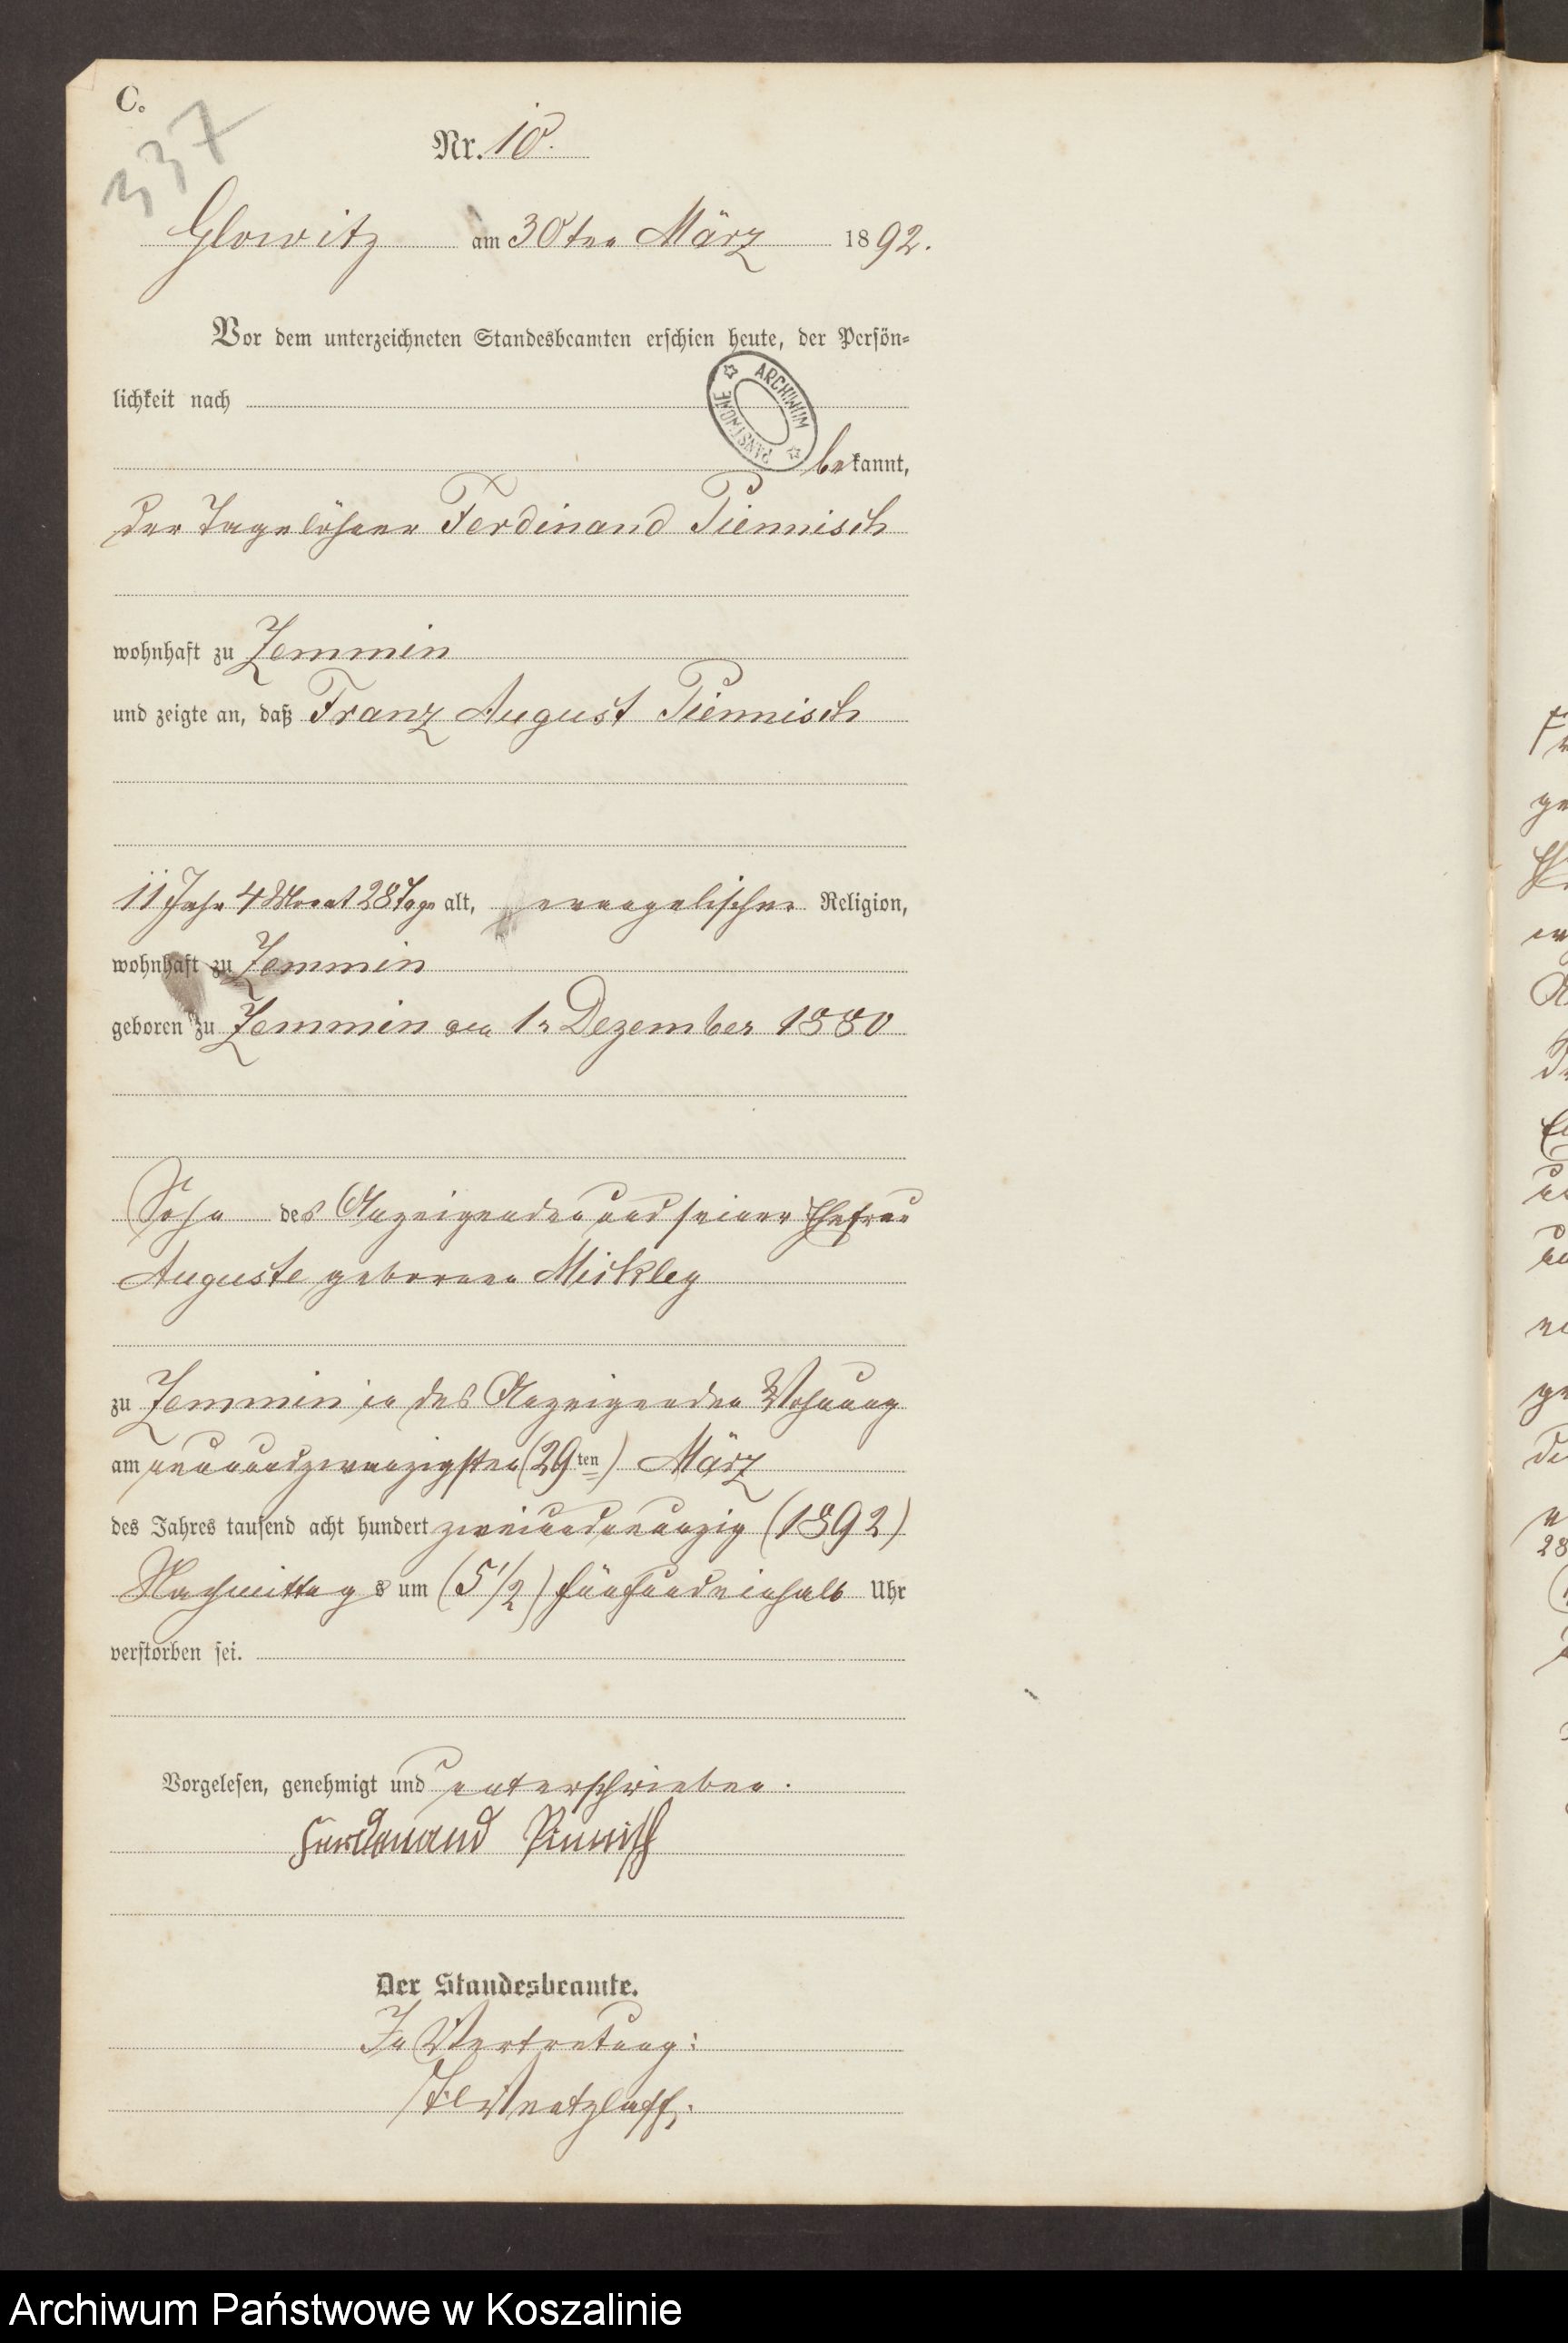 C.
337
Nr. 10.
Glowitz am 30ten März 1892.
Vor dem unterzeichneten Standesbeamten erschien heute, der Persön-
lichkeit nach
ARCHIWUM PAŃSTWOWE
bekannt,
der Tagelöhner Ferdinand Piennisch
wohnhaft zu Zemmin
und zeigte an, daß Franz August Piennisch
11 Jahr 4 Monat 28 Tage alt, evangelischer Religion,
wohnhaft zu Zemmin
geboren zu Zemmin am 1n Dezember 1880
Sohn des Anzeigenden und seiner Ehefrau
Auguste geborenen Mickley
zu Zemmin in des Anzeigenden Wohnung
am neunundzwanzigsten (29ten) März
des Jahres tausend acht hundert zweiundneunzig (1892)
Nachmittags um (5 1/2) fünfundeinhalb Uhr
verstorben sei.
Vorgelesen, genehmigt und unterschrieben.
Ferdinand Piennisch
Der Standesbeamte.
In Vertretung:
Archiwum Państwowe w Koszalinie